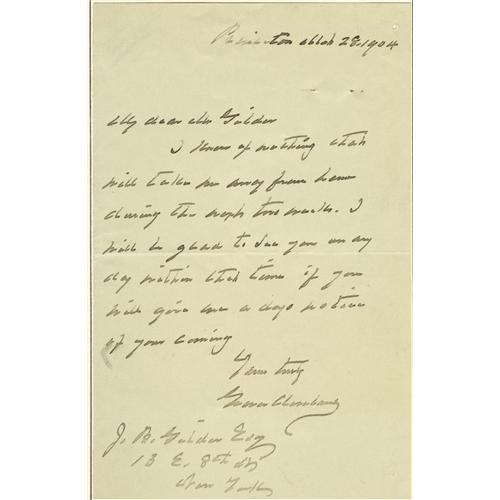 Princeton Mch 28. 1904
My dear Mr Gilder
I know of nothing that
will take me away from home
during the next two weeks. I
will be glad to see you on any
day within that time if you
will give me a days notice
of your coming
Yours truly
Grover Cleveland
Gilder Esq
13 E. 8th St
New York